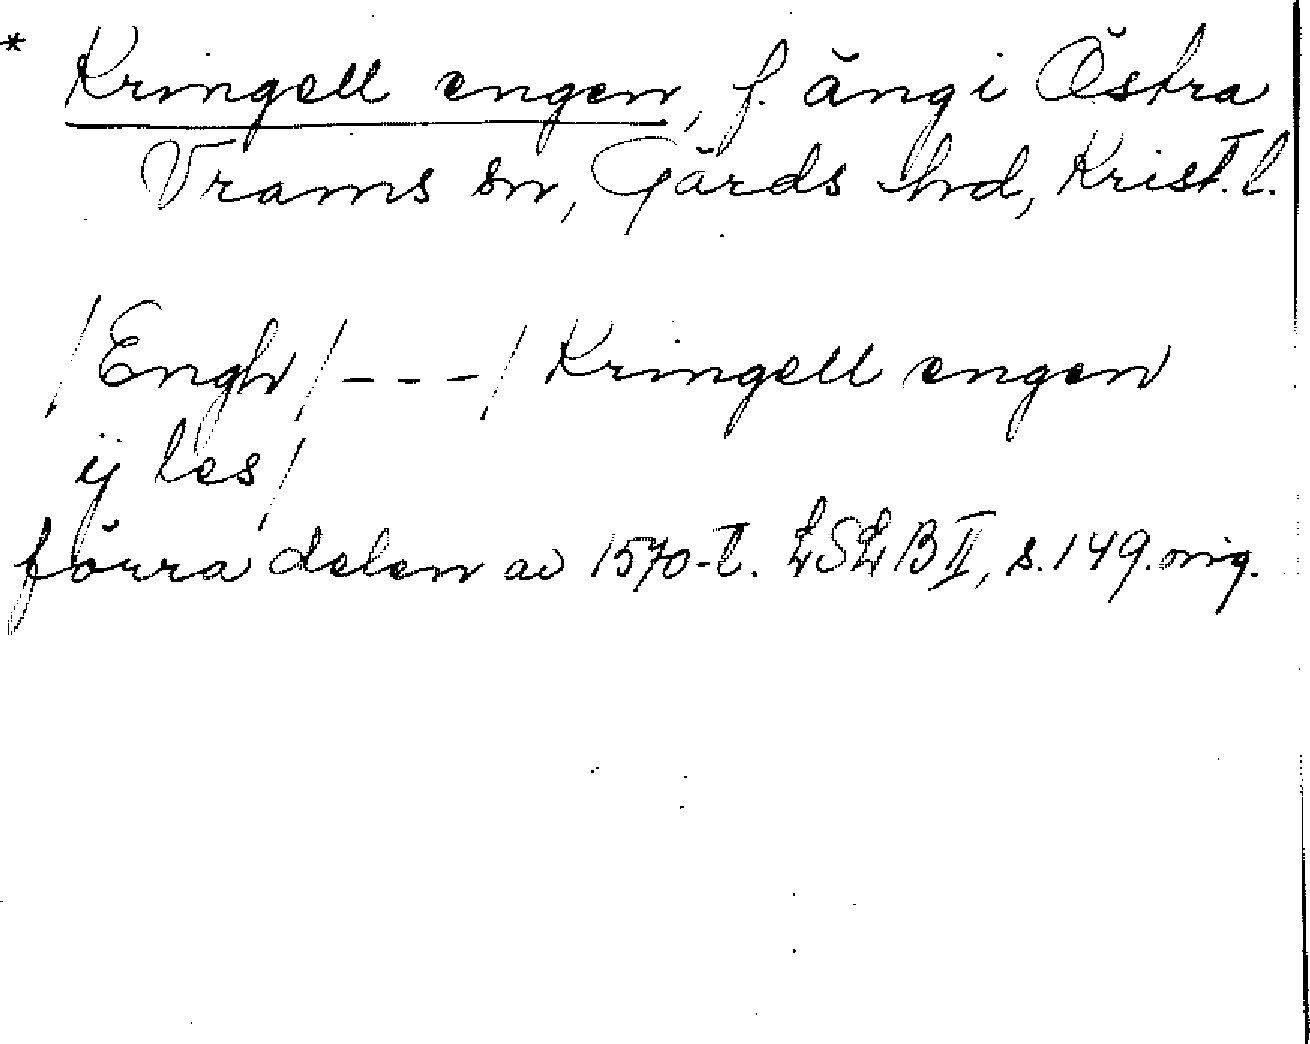 * Kringell engen, f. äng i Östra
Vrams sn, Gärds hd, Krist. l.
/Engh/ - - - / Kringell engen
ij les/
förra delen av 1570-t. LSLB II, s. 149. orig.